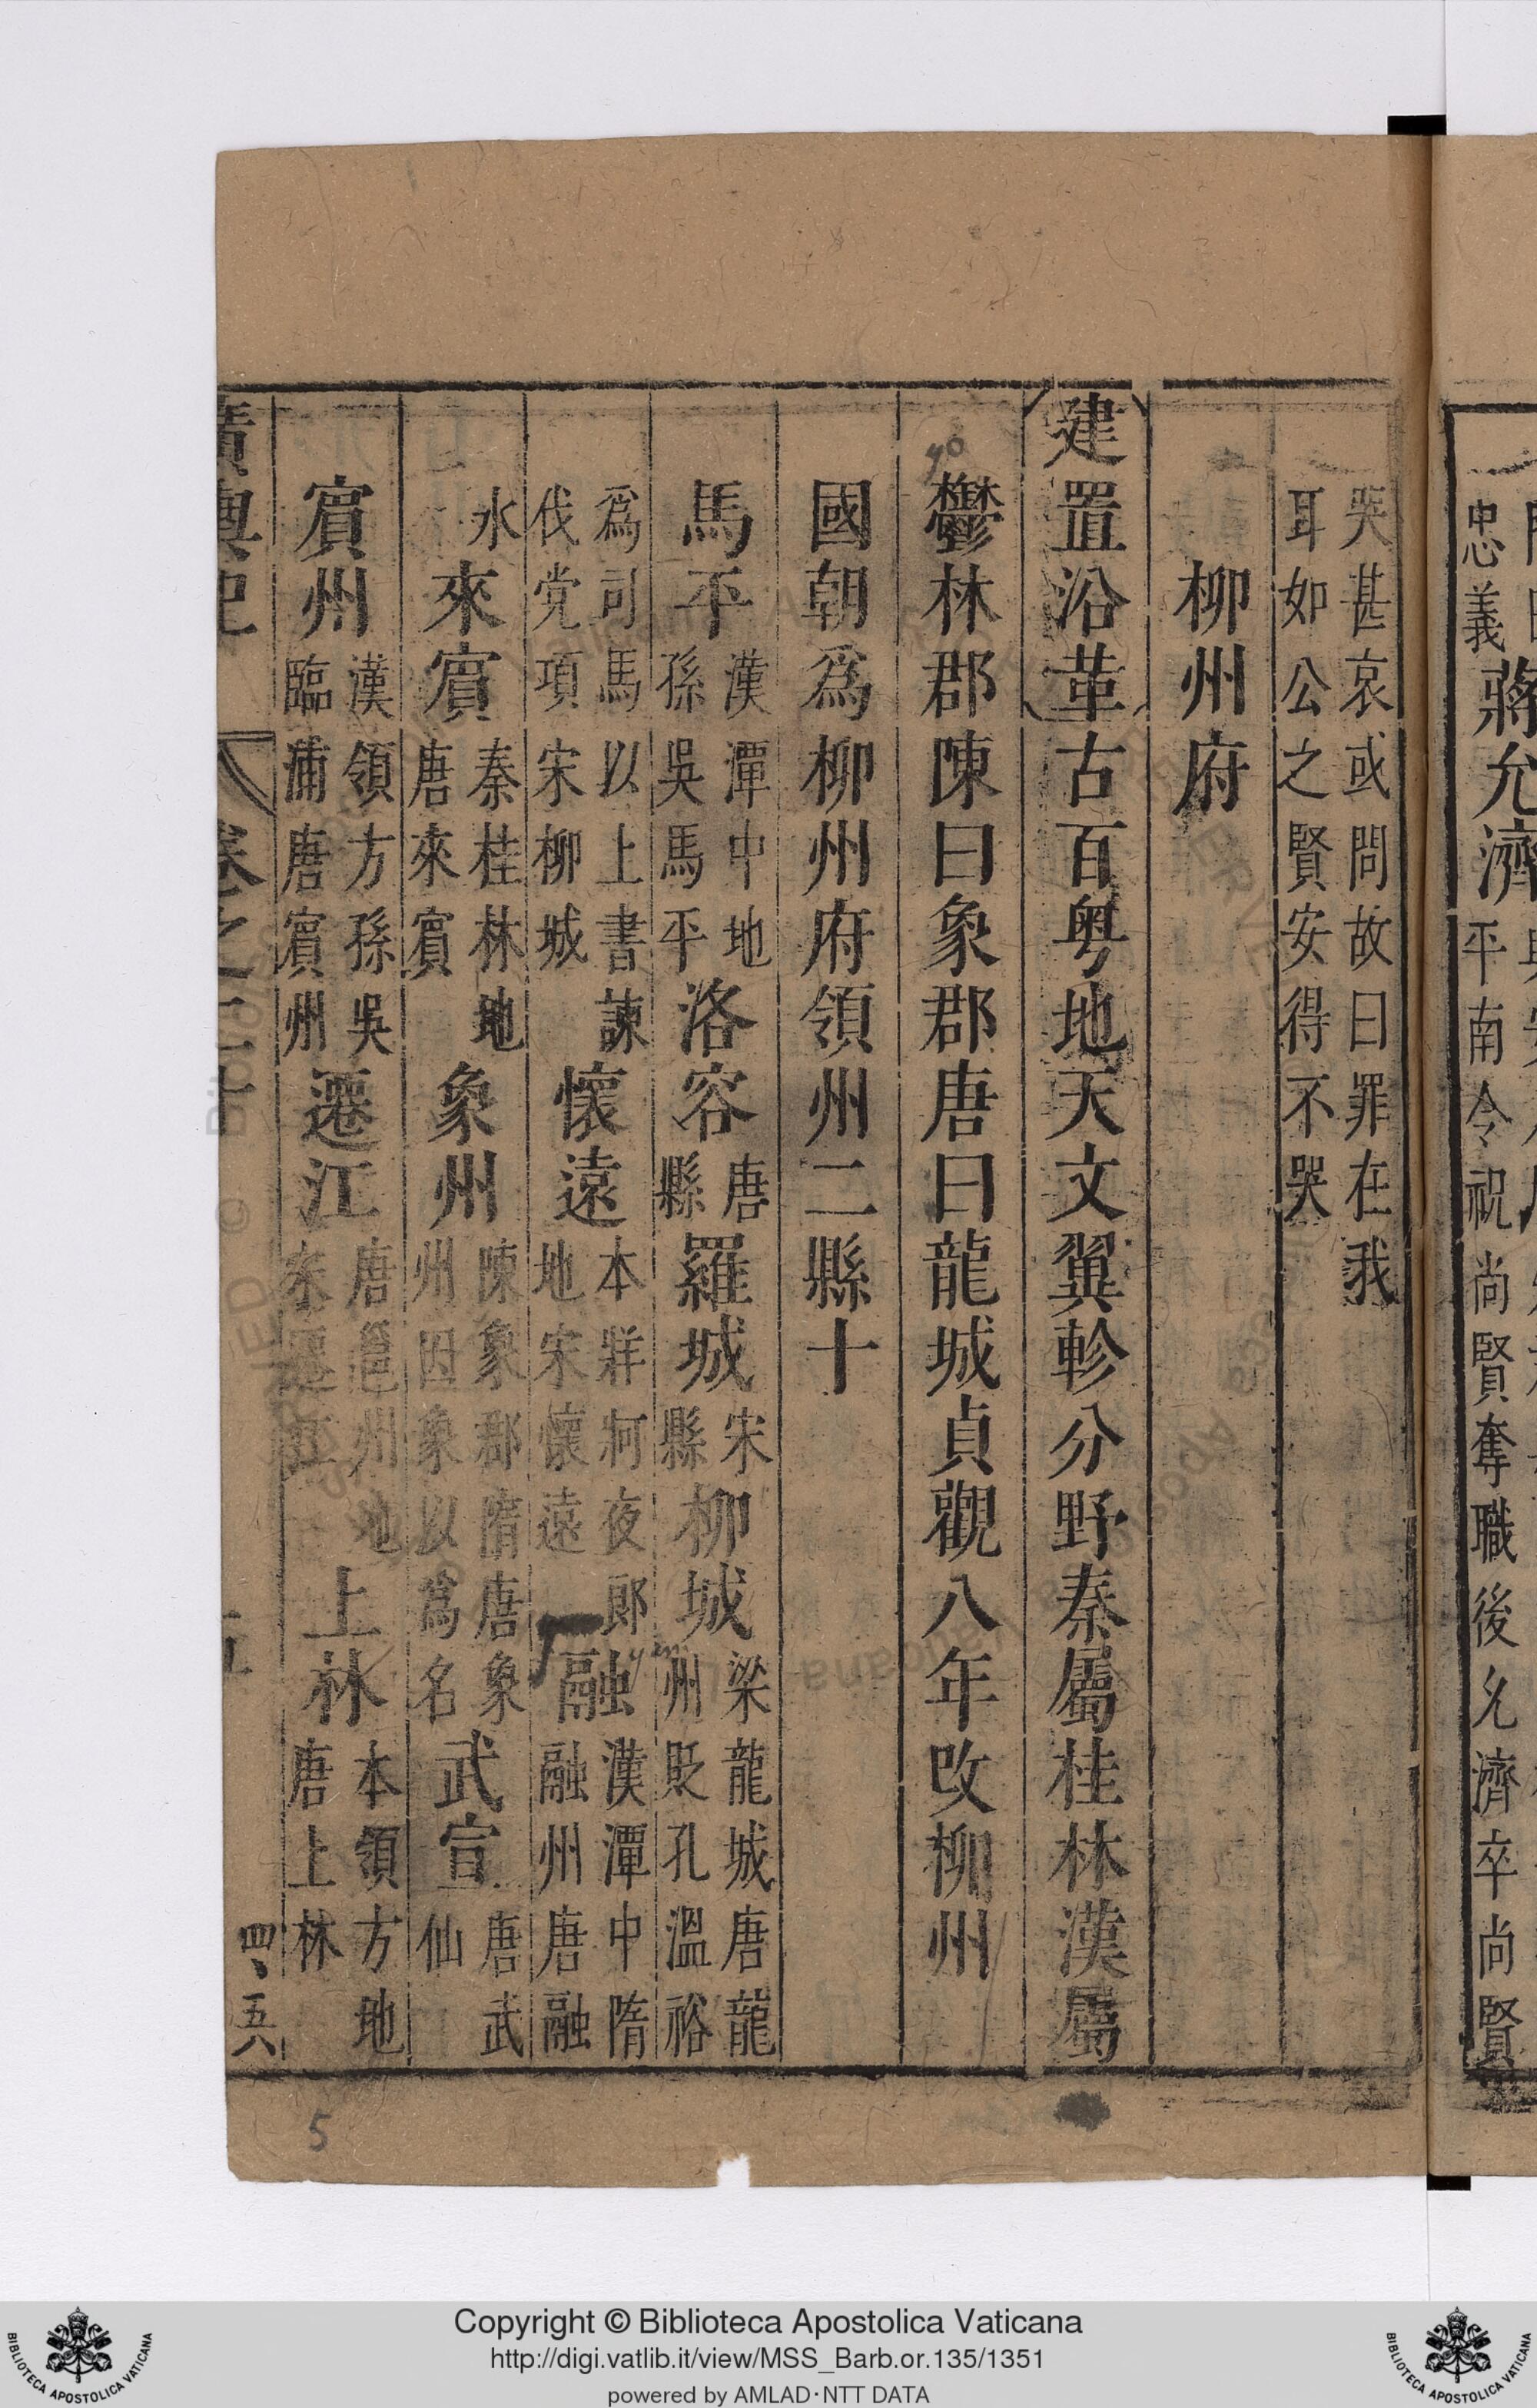 忠義蔣允濟平南令祝尚賢奪職後允濟卒尚賢
哭甚哀或問故曰罪在我
耳如公之賢安得不哭
柳州府
建置沿革古百粵地天文翼軫分野秦屬桂林漢屬
鬱林郡陳曰象郡唐曰龍城貞觀八年改柳州
國朝爲柳州府領州二縣十
馬平漢潭中地孫吳馬平洛容唐縣羅城宋縣柳城梁龍城唐龍州貶孔溫裕
爲司馬以上書諫伐党項宋柳城懷遠本牂牁夜郎地宋懷遠融漢潭中隋融州唐融
水來賓秦桂林地唐來賓象州陳象郡隋唐象州因象以爲名武宣唐武仙
賓州漢領方孫吳臨浦唐賓州遷江唐邕州地宋遷江上林本領方地唐上林
廣輿記 卷之二十
四、五六
yô
yûm
5
Copyright © Biblioteca Apostolica Vaticana
http://digi.vatlib.it/view/MSS_Barb.or.135/1351
powered by AMLAD·NTT DATA
BIBLIOTECA APOSTOLICA VATICANA
BIBLIOTECA APOSTOLICA VATICANA